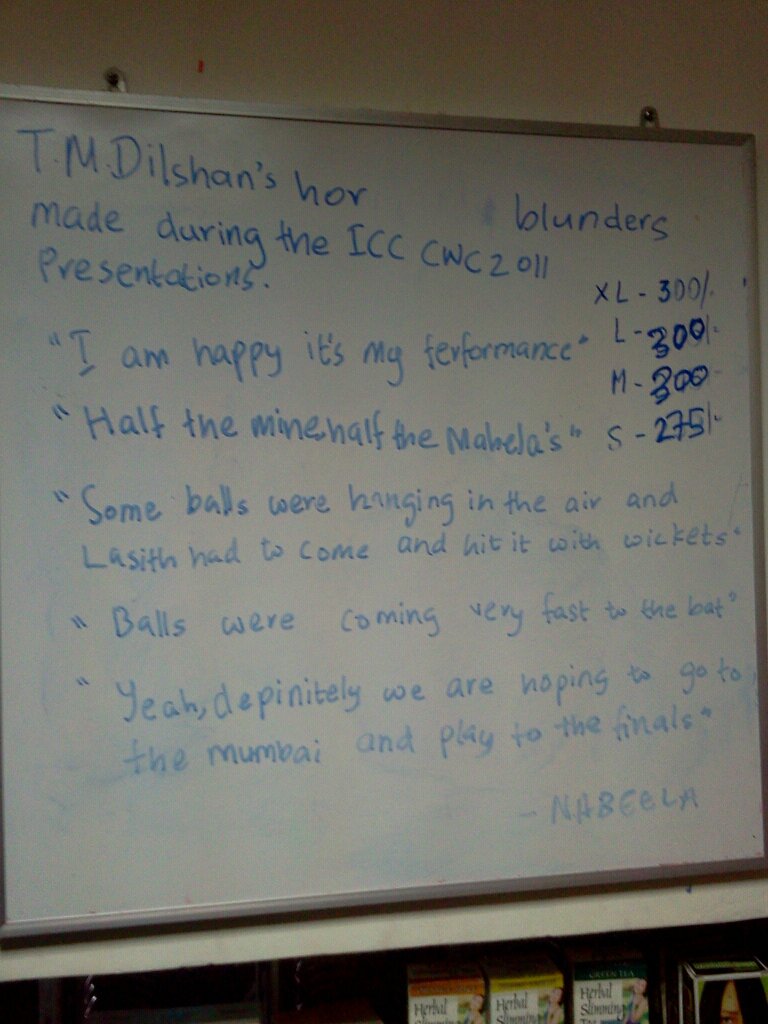 T.M.Dilshan's hor blunders
made during the ICC CWC 2011
Presentations.
XL - 300/-
L - 300/-
M - 300
S - 275/-
"I am happy it's my ferformance"
"Half the mine, half the Mahela's"
"Some balls were hanging in the air and
Lasith had to come and hit it with wickets"
"Balls were coming very fast to the bat"
"Yeah, depinitely we are hoping to go to
the mumbai and play to the finals"
- NABEELA
Herbal
Slimming
Herbal
Slimming
GREEN TEA
Herbal
Slimming
Tea